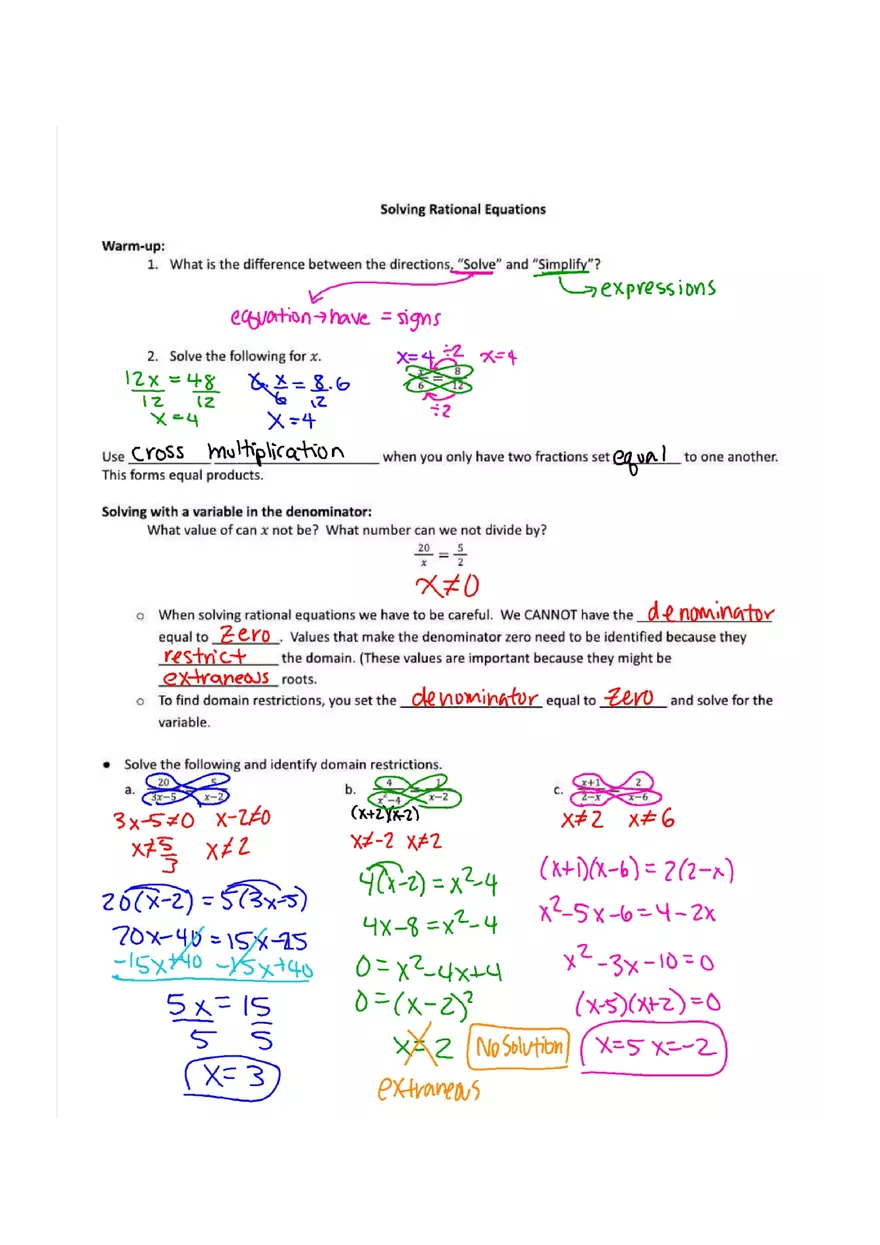 Solving Rational Equations
Warm-up:
1. What is the difference between the directions, “Solve” and “Simplify”?
→expressions
equation→have = signs
2. Solve the following for x.
x=4 ÷2 x=4
x/6 = 8/12
÷2
12x = 48 6·x/6 = 8·6/12
12 12
x=4 x=4
Use cross multiplication when you only have two fractions set equal to one another.
This forms equal products.
Solving with a variable in the denominator:
What value of can x not be? What number can we not divide by?
20/x = 5/2
x≠0
o When solving rational equations we have to be careful. We CANNOT have the denominator
equal to zero. Values that make the denominator zero need to be identified because they
restrict the domain. (These values are important because they might be
extraneous roots.
o To find domain restrictions, you set the denominator equal to zero and solve for the
variable.
• Solve the following and identify domain restrictions.
a. 20/3x−5 = 5/x−2 b. 4/x²−4 = 1/x−2 c. x+1/2−x = 2/x−6
(x+2)(x-2)
3x-5≠0 x-2≠0 x≠-2 x≠2 x≠2 x≠6
x≠5/3 x≠2
20(x-2) = 5(3x-5) 4(x-2) = x²-4 (x+1)(x-6) = 2(2-x)
20x-40 = 15x-25 4x-8 = x²-4 x²-5x-6 = 4-2x
-15x+40 -15x+40 0 = x²-4x+4 x²-3x-10=0
5x = 15 0 = (x-2)² (x-5)(x+2)=0
5 5 x=2 No Solution x=5 x=-2
x=3 extraneous